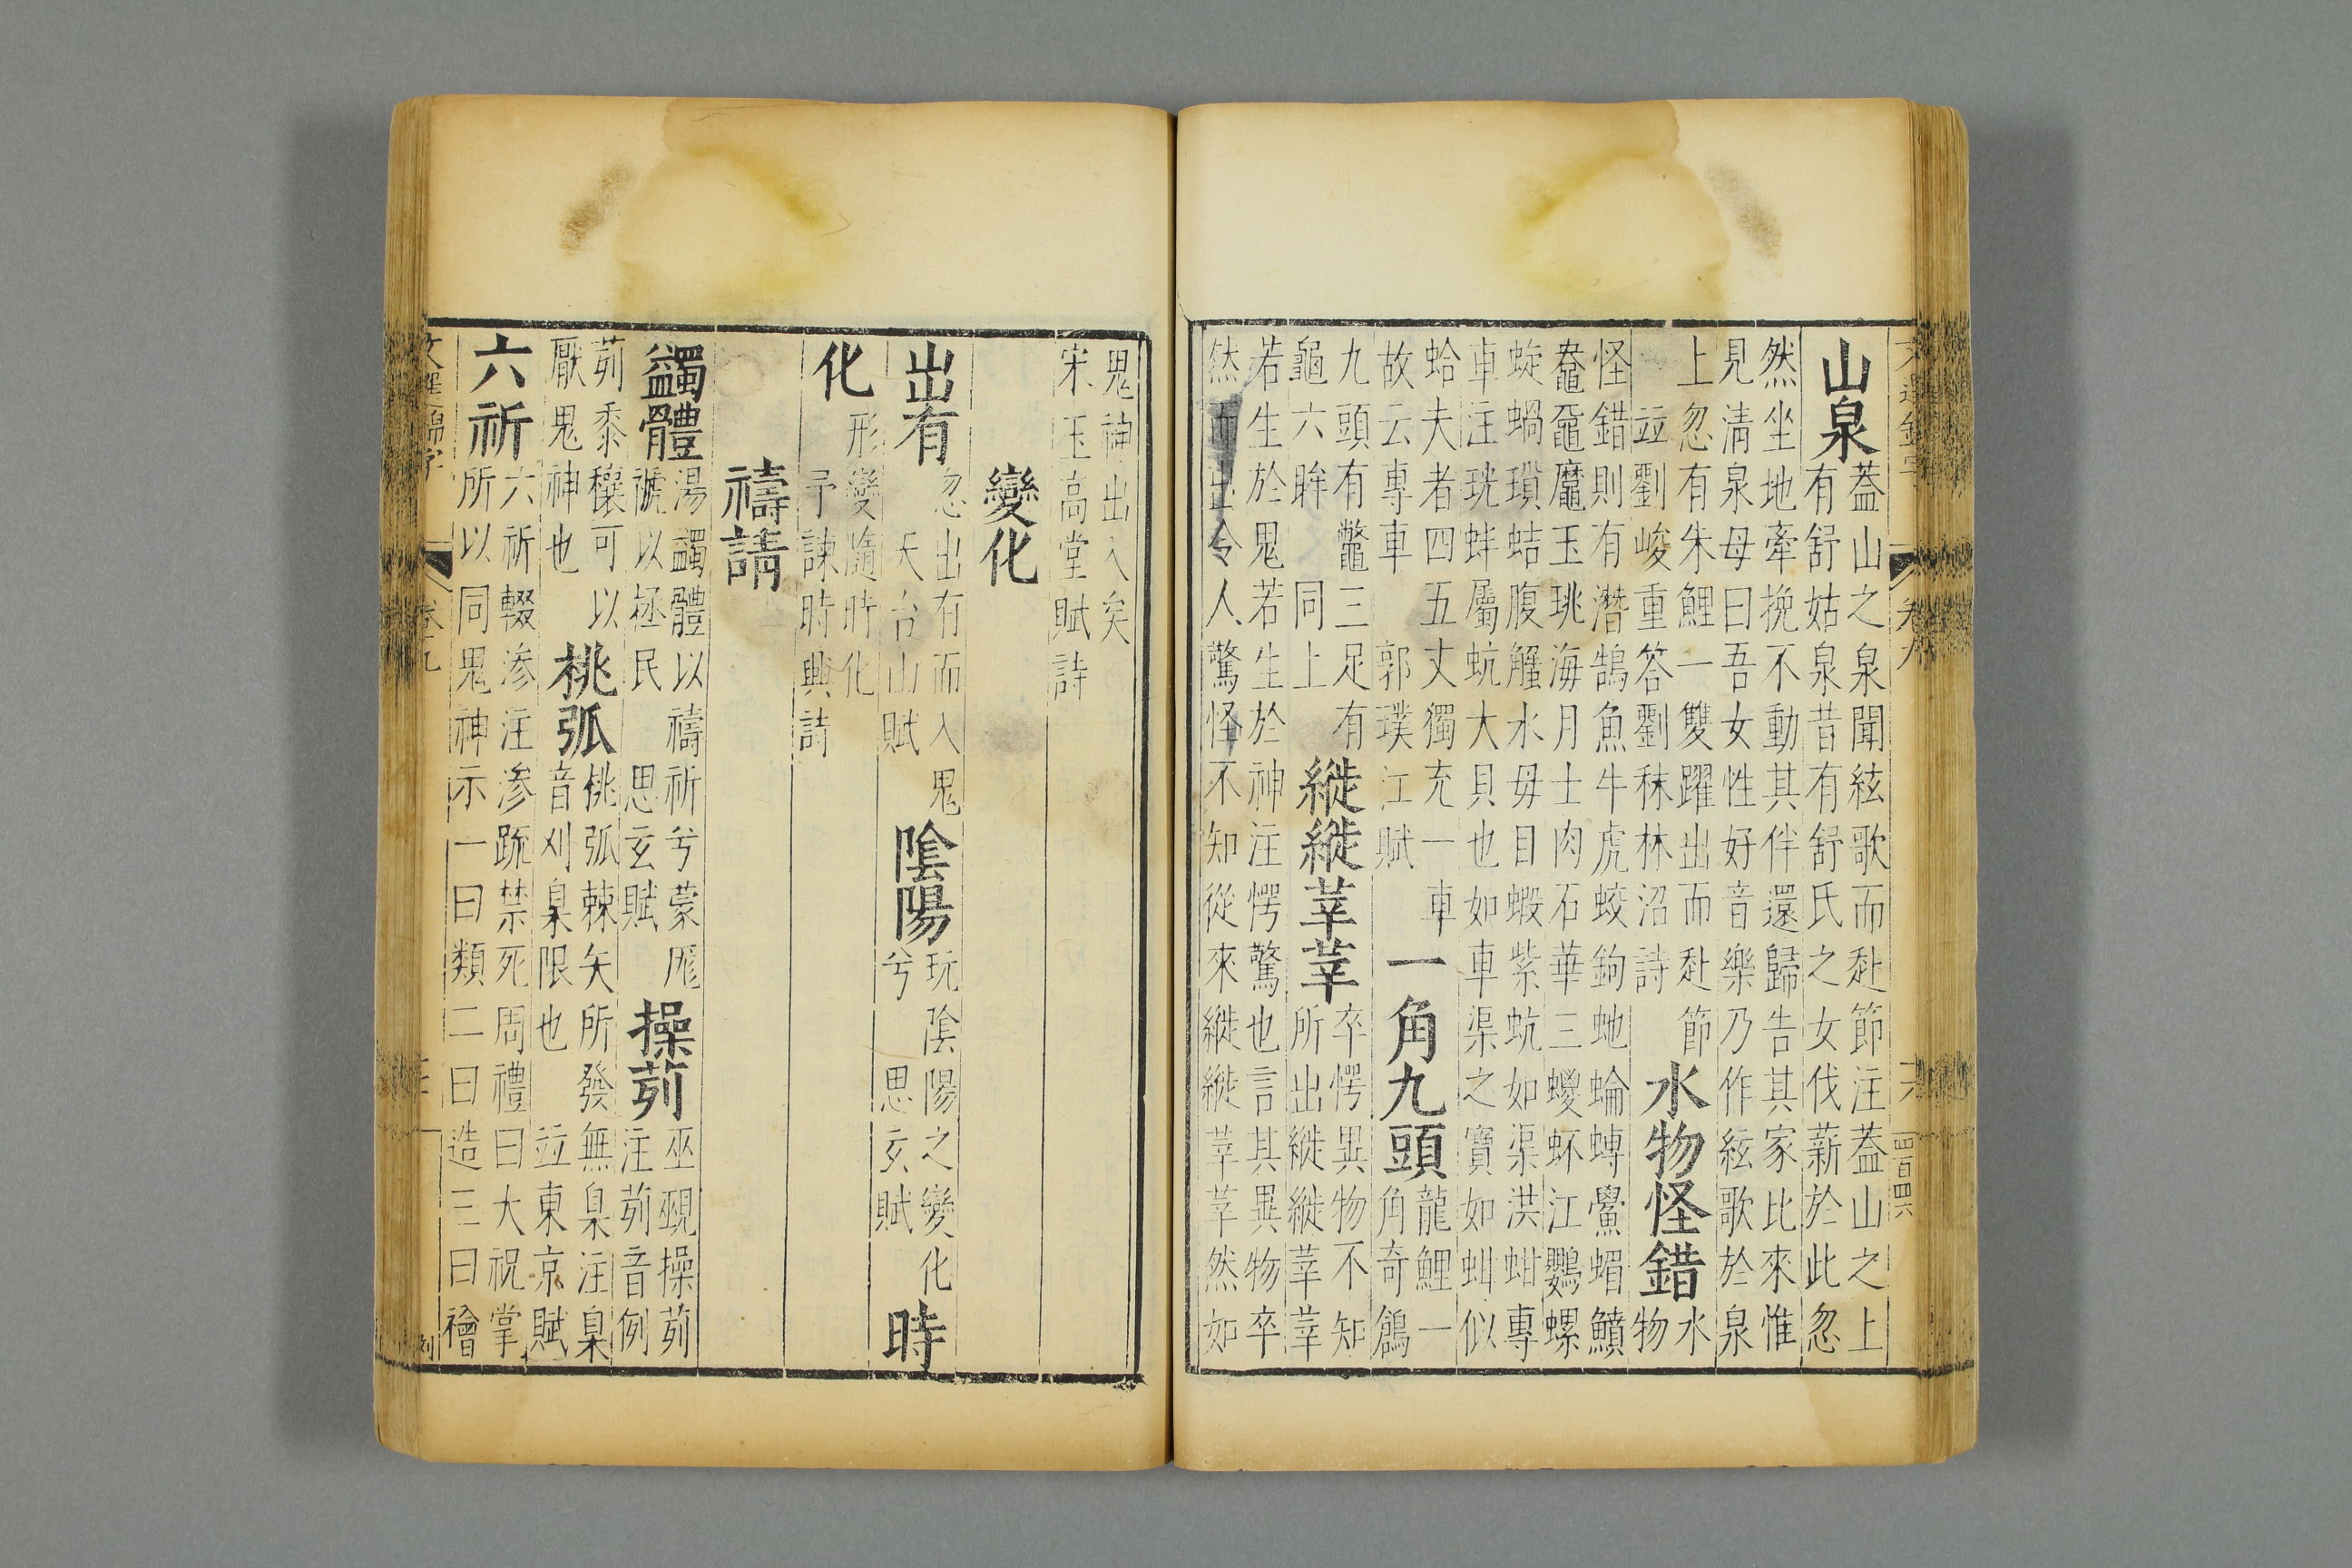 文選錦字
卷九
六
四百四六
山泉
蓋山之泉聞絃歌而赴節注蓋山之上
有舒姑泉昔有舒氏之女伐薪於此忽
然坐地牽挽不動其伴還歸告其家比來惟
見淸泉母曰吾女性好音樂乃作絃歌於泉
上忽有朱鯉一雙躍出而赴節
竝劉峻重答劉秣林沼詩
水物怪錯
水
物
怪錯則有潛鵠魚牛虎蛟鉤虵蜦鱄鱟蝞鱝
鼀黿鼊玉珧海月土肉石華三蝬蚌江鸚螺
蜁蝸璅蛣腹蟹水母目蝦紫蚢如渠洪蚶專
車注珧蚌屬蚢大貝也如車渠之寶如蚶似
蛤夫者四五丈獨充一車
故云專車 郭璞江賦
一角九頭
龍鯉一
角奇鶬
九頭有鼈三足有
龜六眸 同上
縰縰莘莘
卒愕異物不知
所出縰縰莘莘
若生於鬼若生於神注愕驚也言其異物卒
然而出令人驚怪不知從來縰縰莘莘然如
鬼神出入矣
宋玉高堂賦詩
變化
出有
忽出有而入鬼
天台山賦
陰陽
玩陰陽之變化
兮 思玄賦
時
化
形變隨時化
予諫時興詩
禱請
蠲體
湯蠲體以禱祈兮蒙厖
禠以拯民 思玄賦
操茢
巫覡操茢
注茢音例
茢黍穰可以
厭鬼神也
桃弧
桃弧棘矢所發無臬注臬
音刈臬限也 竝東京賦
六祈
六祈輟滲注滲䟽禁死周禮曰大祝掌
所以同鬼神示一曰類二曰造三曰禬
文選錦字
卷九